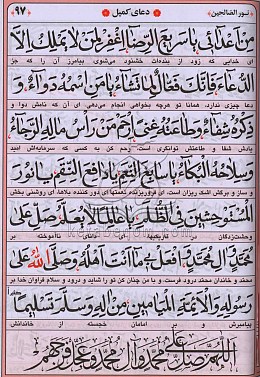 ۹۷ دعای کمیل نور الصالحین
مِنْ أَعْدَائِی یَا سَرِیعَ الرِّضَا اغْفِرْ لِمَنْ لَا یَمْلِکُ إِلَّا
ای خدایی که زود از بندهات خشنود می‌شوی بیامرز آن را که جز
الدُّعَاءَ فَإِنَّکَ فَعَّالٌ لِمَا تَشَاءُ یَا مَنِ اسْمُهُ دَوَاءٌ وَ
دعا چیزی ندارد. همانا تو هرچه بخواهی انجام می‌دهی ای آن که نامش دوا و
ذِکْرُهُ شِفَاءٌ وَ طَاعَتُهُ غِنًی اِرْحَمْ مَنْ رَأْسُ مَالِهِ الرَّجَاءُ
یادش شفا و طاعتش توانگری است. رحم کن به کسی که سرمایه‌اش امید
وَ سِلَاحُهُ الْبُکَاءُ یَا سَابِغَ النِّعَمِ یَا دَافِعَ النِّقَمِ یَا نُورَ
و ساز و برگش اشک ریزان است. ای فروریزنده نعمتها ای دور کننده بلاها، ای روشنی بخش
الْمُسْتَوْحِشِینَ فِی الظُّلَمِ یَا عَالِمًا لَا یُعَلَّمُ صَلِّ عَلَی
وحشت‌زدگان در تاریکیها ای دانای ناآموخته بر
مُحَمَّدٍ وَ آلِ مُحَمَّدٍ وَ افْعَلْ بِی مَا أَنْتَ أَهْلُهُ وَ صَلَّی اللهُ عَلَی
محمد و خاندان محمد درود فرست. و با من چنان کن که تو را شاید و درود و سلام فراوان خدا بر
رَسُولِهِ وَ الْأَئِمَّةِ الْمَیَامِینَ مِنْ آلِهِ وَ سَلَّمَ تَسْلِیمًا
پیامبرش و بر امامان خجسته از خاندانش
اللهم صل علی محمد و آل محمد و عجل فرجهم